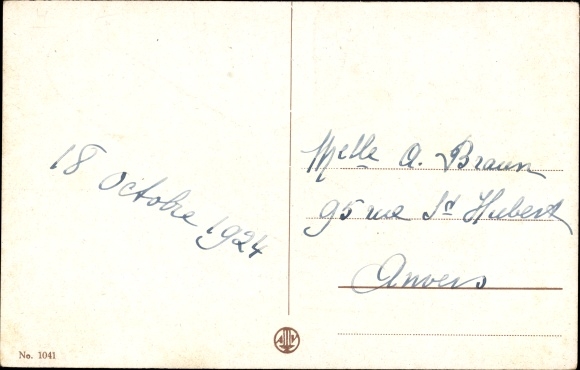 18 Octobre 1924
Melle A. Braun
95 rue St Hubert
Anvers
No. 1041